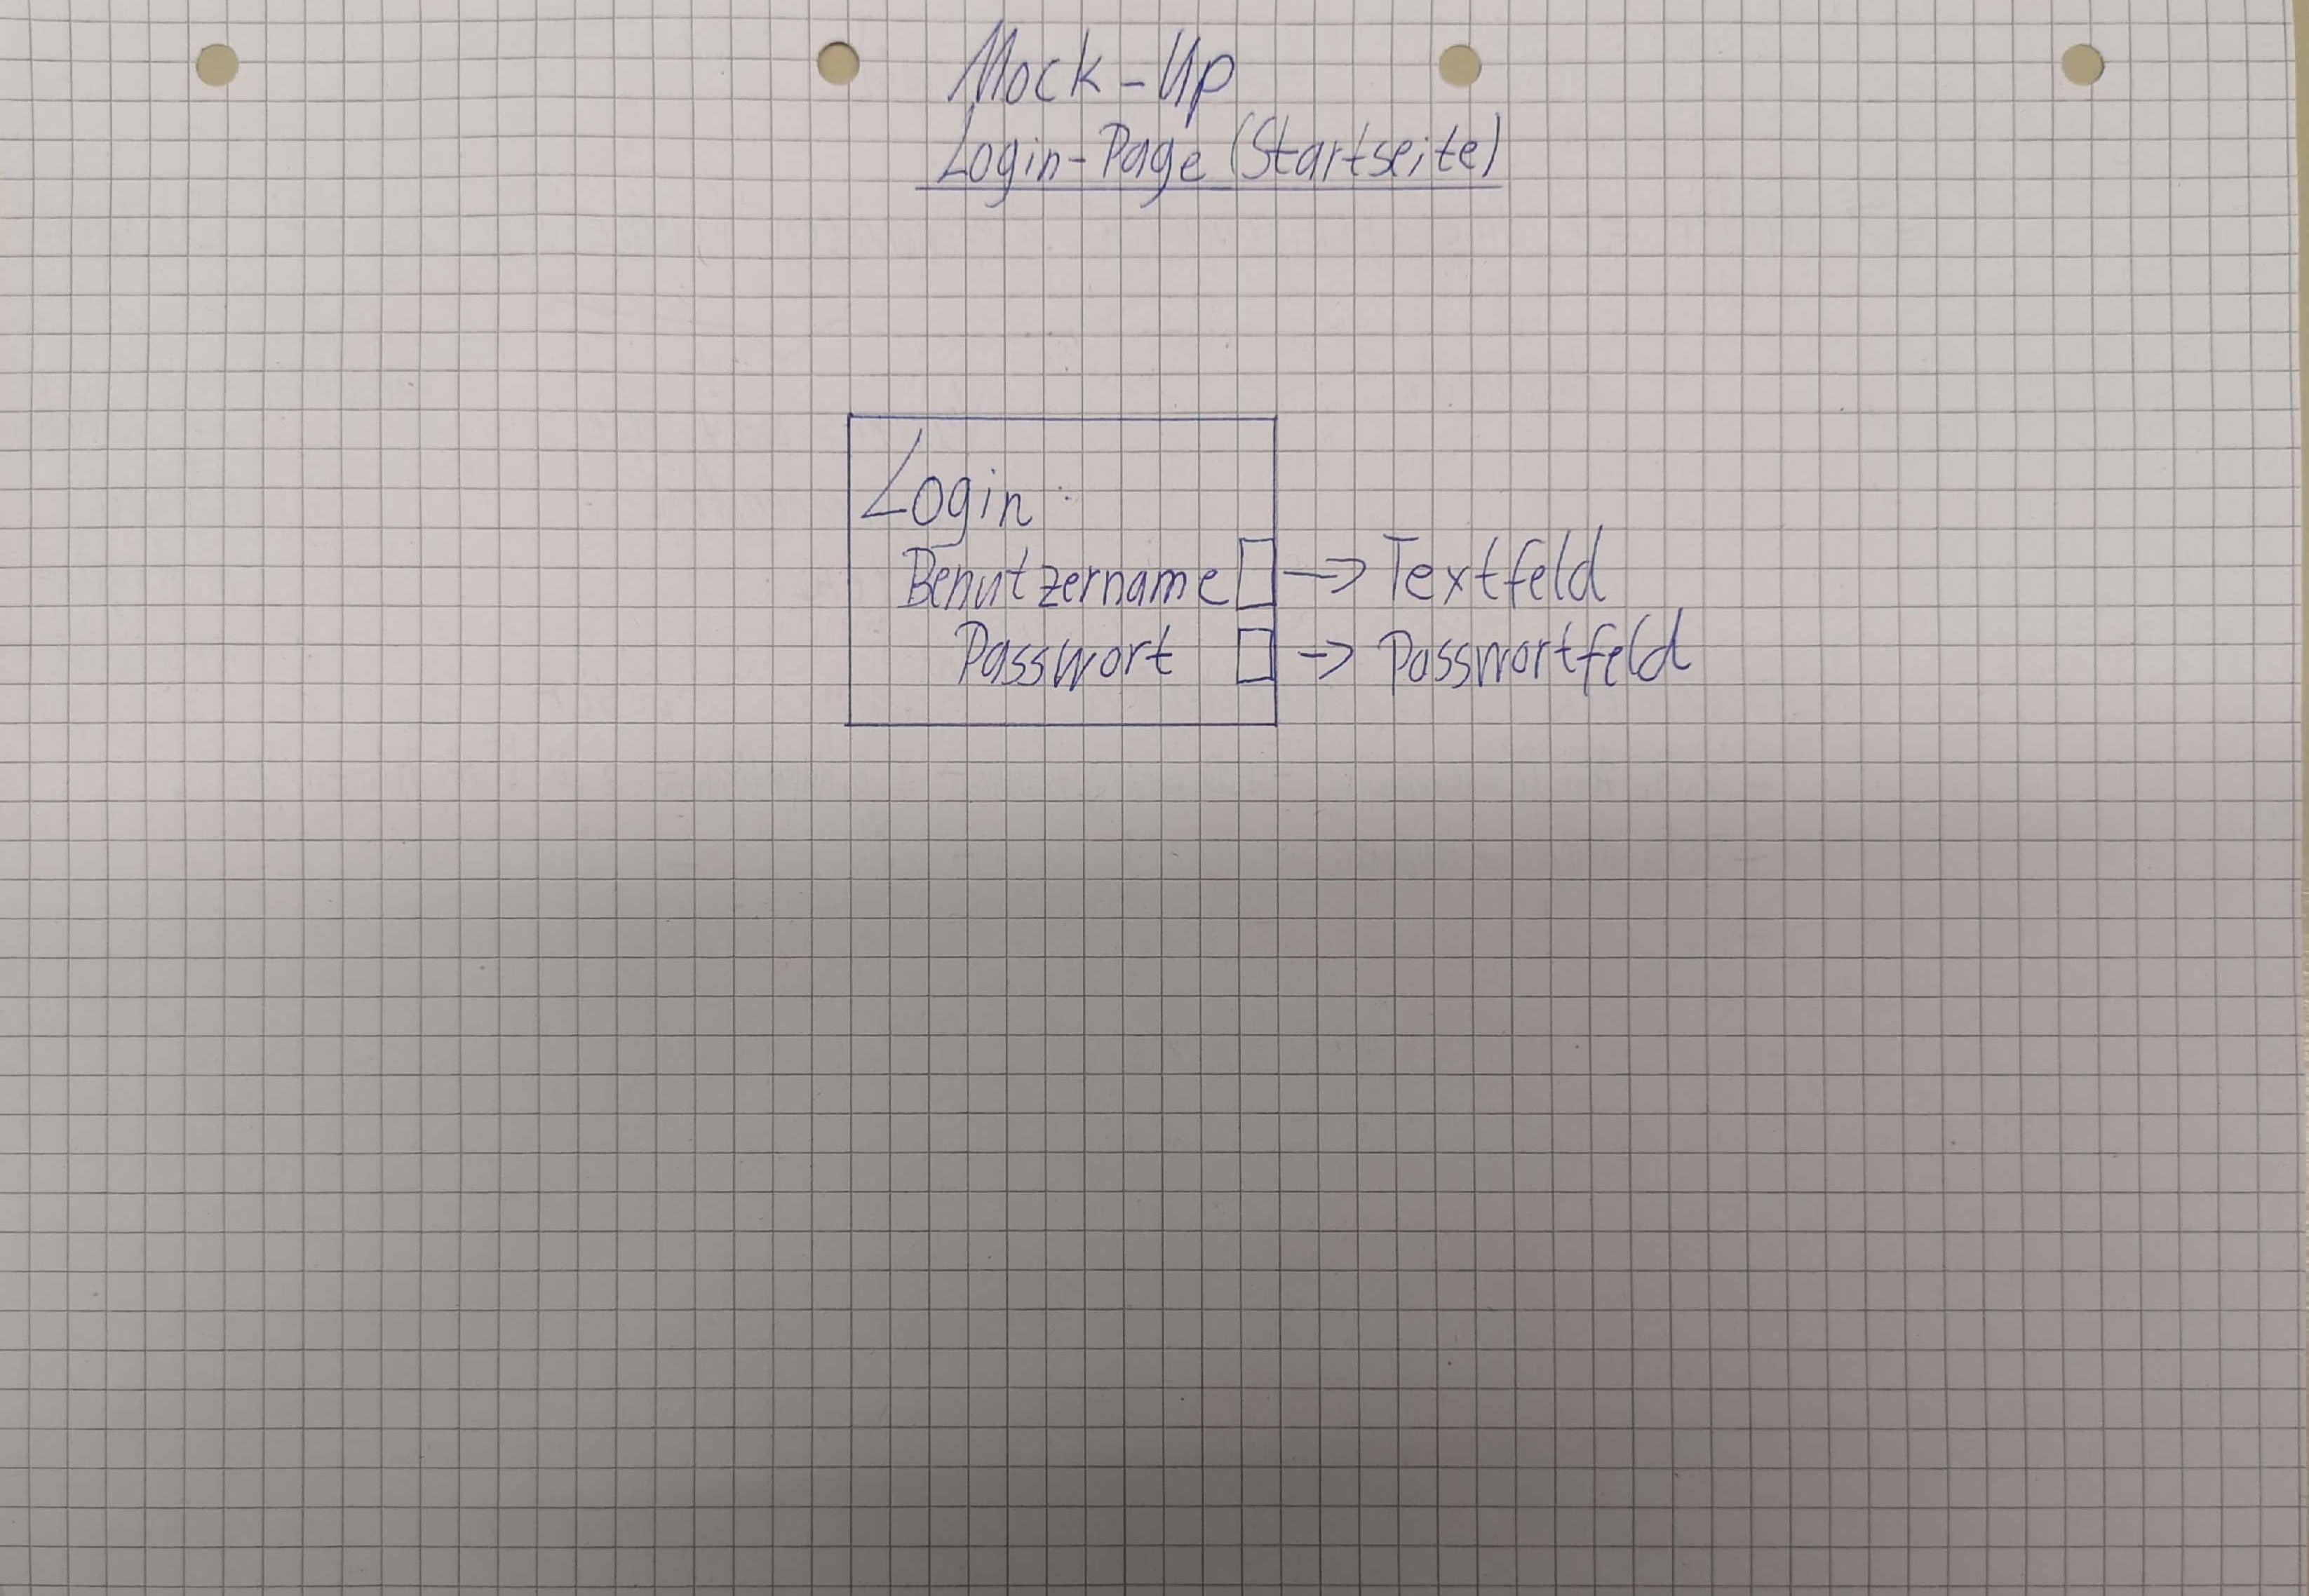 Mock-Up
Login-Page (Startseite)
Login
Benutzername → Textfeld
Passwort → Passwortfeld